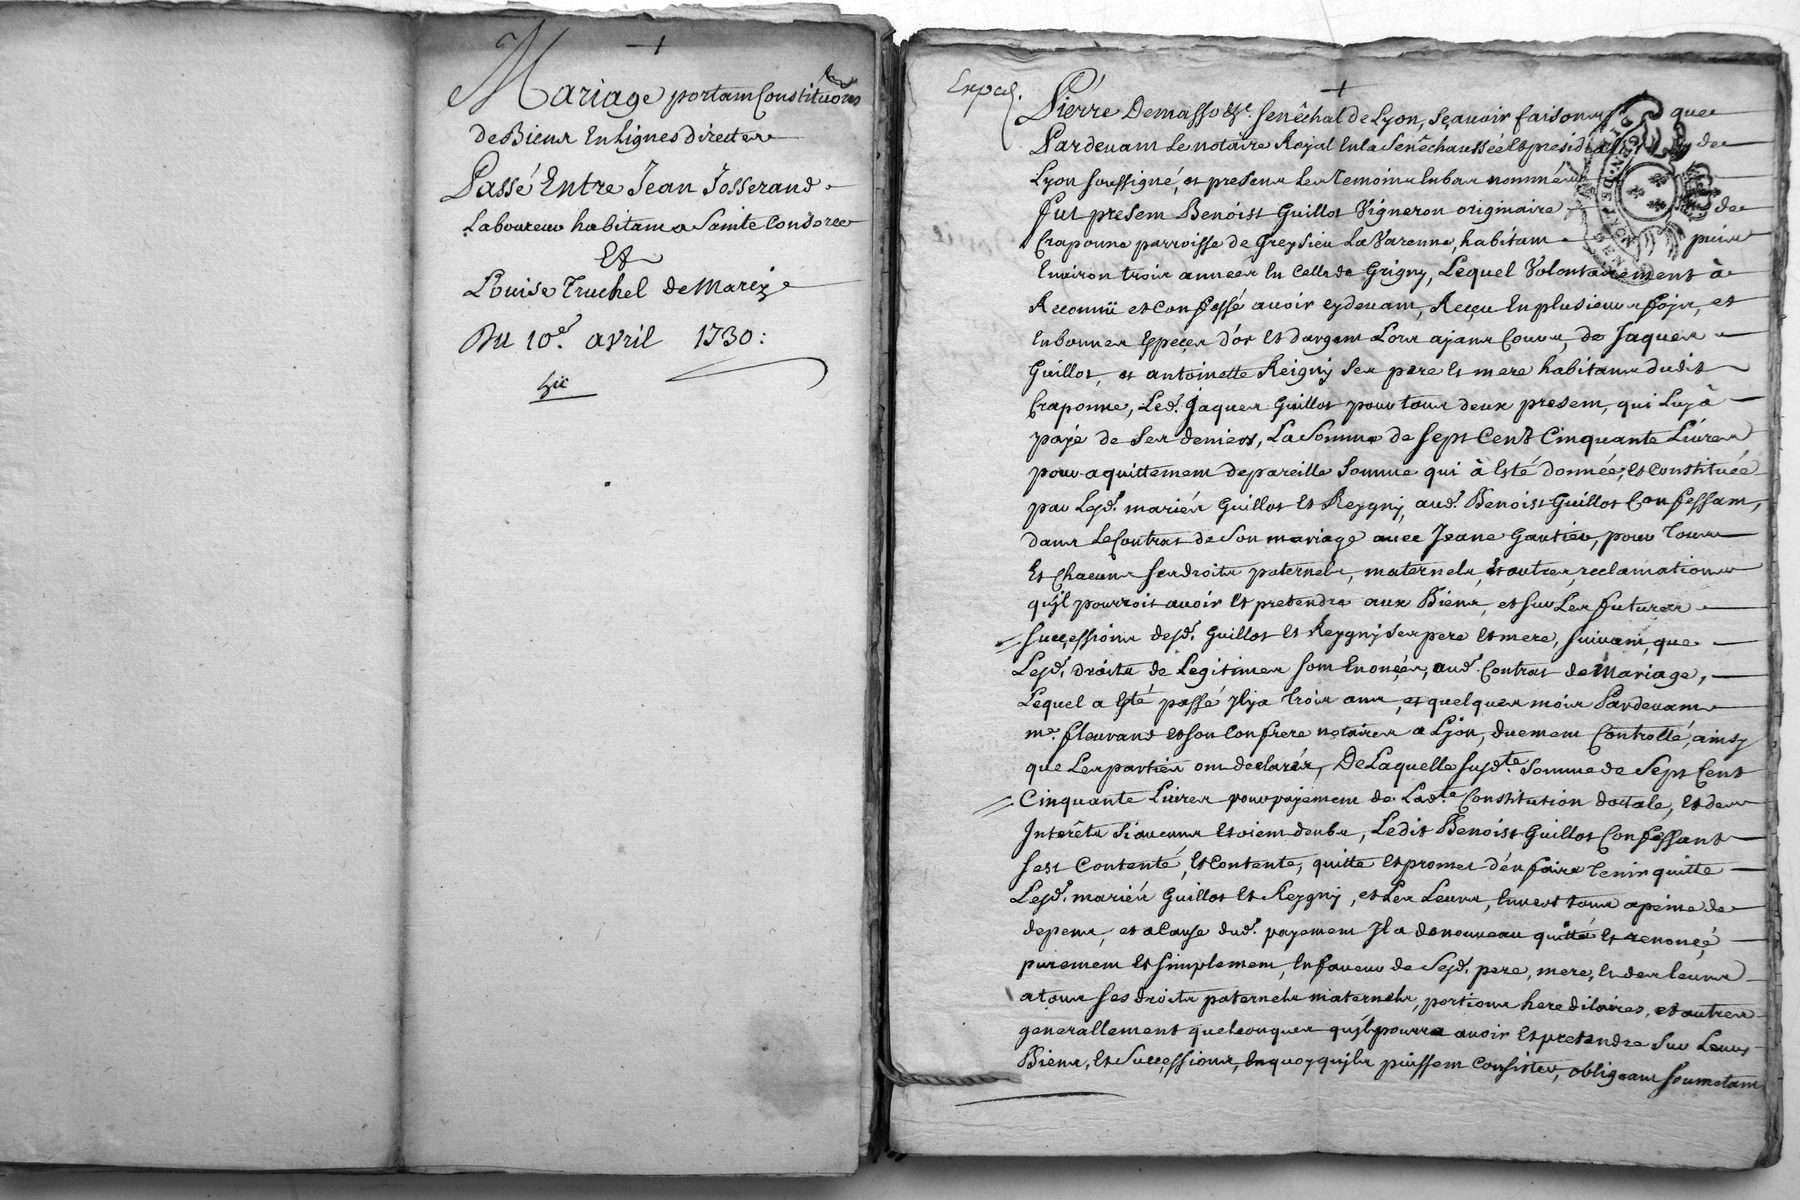 Mariage portant Constituõns
de Biens En Lignes directes
Passé Entre Jean Josserand
Laboureur habitant a Sainte Consorce
Et
Louise Truchel de Marcy
Du 10e. avril 1730:
Expéd.
Pierre Demasso &c. senêchal de Lyon, sçavoir faisons que
Pardevant Le notaire Royal En la Senêchaussée Et presidial de
Lyon soussigné, et presens Les Temoins En bas nommés
fut present Benoist Guillot Vigneron originaire de
Craponne parroisse de Greysieu La Varenne, habitant puis
Environ trois années En Celle de Grigny, Lequel Volontairement à
Reconnû et confessé avoir cydevant, Reçeu En plusieurs fois, et
En bonnes Espeçes d'or Et d'argent Lors ajant Cours, de Jaques
Guillot, et antoinette Reigny Ses pere Et mere habitans dudit
Craponne, Led. Jaques Guillot pour tous deux present, qui Luy à
payé de Ses deniers, La Somme de Sept Cent Cinquante Livres
pour aquittement de pareille Somme qui à Esté donnée, Et constituée
par Lesd. mariés Guillot Et Reygny, aud. Benoist Guillot Confessant,
dans Le Contrat de Son mariage avec Jeane Gautier, pour Tous
Et Chacuns Ses droits paternels, maternels, Et autres reclamations
qu'jl pourroit avoir Et pretendre aux Biens, et sur Les futures
Successions desd. Guillot Et Reygny Ses pere Et mere, suivant, que
Lesd. droits de Legitimes sont Enonçés, aud. Contrat de Mariage,
Lequel a Esté passé Jlya Trois ans, et quelques mois Pardevant
me. fleurant et son Confrere notaires a Lyon, duement Controllé, ainsy
que Les parties ont declarés, De Laquelle susdte. Somme de Sept Cent
Cinquante Livres pour pajement de Ladte. Constitution dottale, Et des
Interêts Si aucuns Etoient deubs, Ledit Benoist Guillot Confessant
sest Contenté, Et Contente, quitte Et promet d'en faire Tenir quitte
Lesd. mariés Guillot Et Reygny, et Les Leurs, Envers tous a peine de
depens, et a Cause dud. payement Jl a de nouveau quitté Et renoncé,
purement Et simplement, En faveur de Sesd. pere, mere, Et des leurs
a tous ses droits paternels maternels, portions hereditaires, et autres
generallement quelconques qu'jl pourra avoir Et pretendre Sur Leurs
Biens, Et Successions, En quoy qu'jls puissent Consister, obligeant soumetant